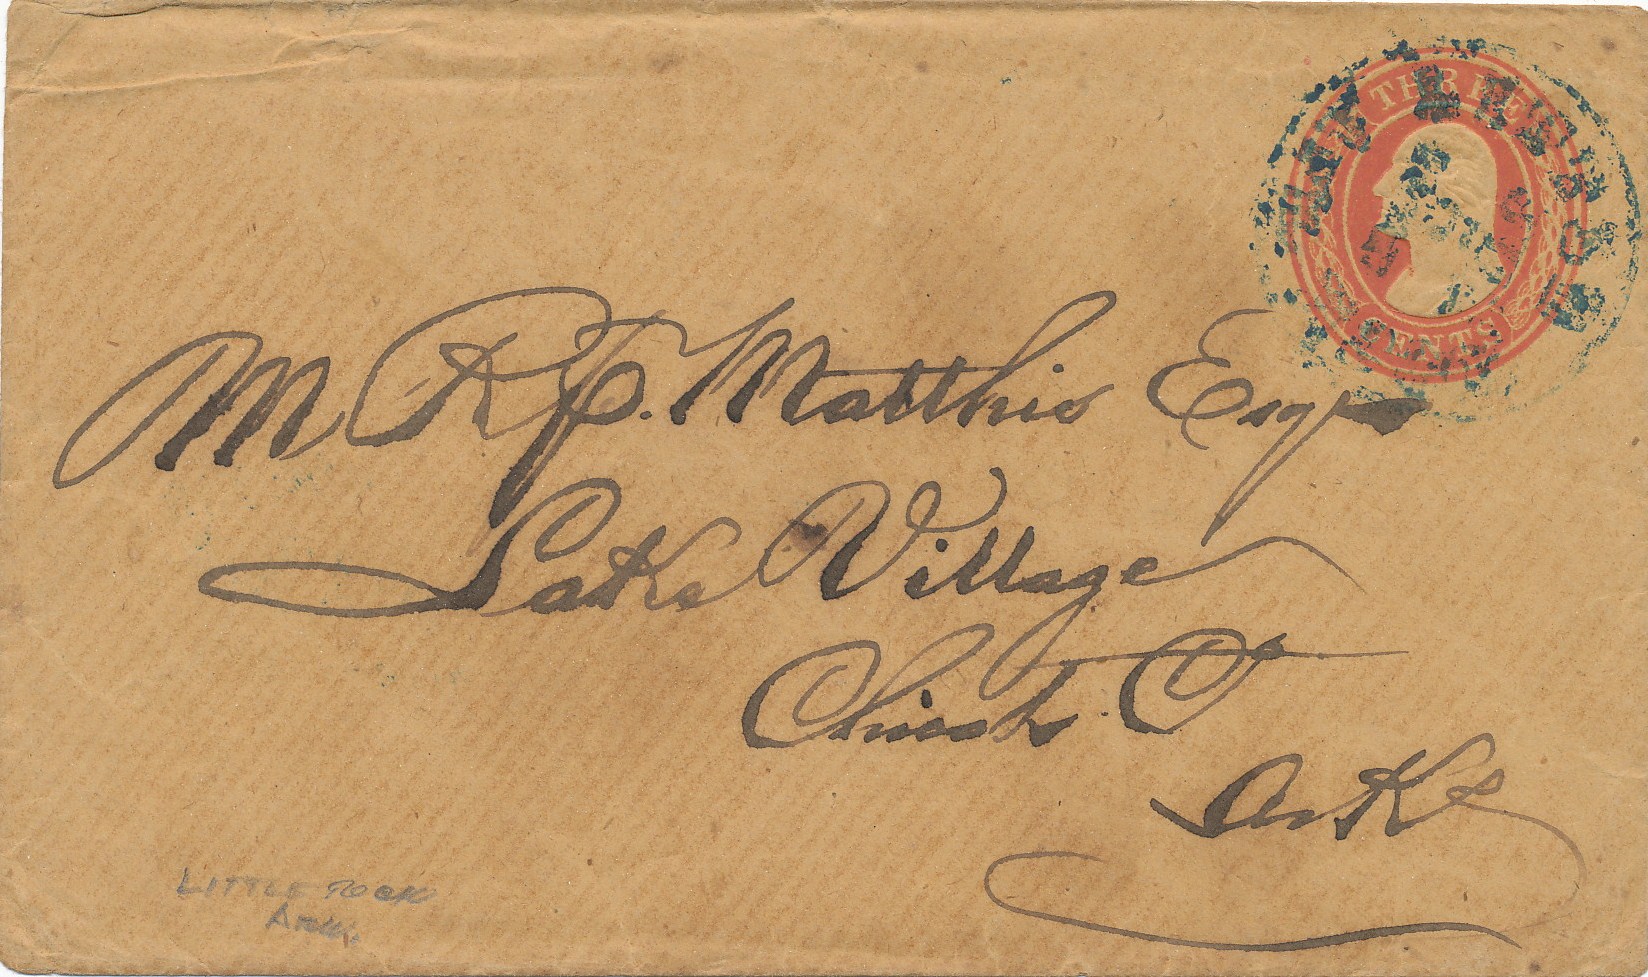 THREE
CENTS
M R F. Matthis Esqr
Lake Village
Chicot Ct
Arks
LITTLE ROCK
Ark.